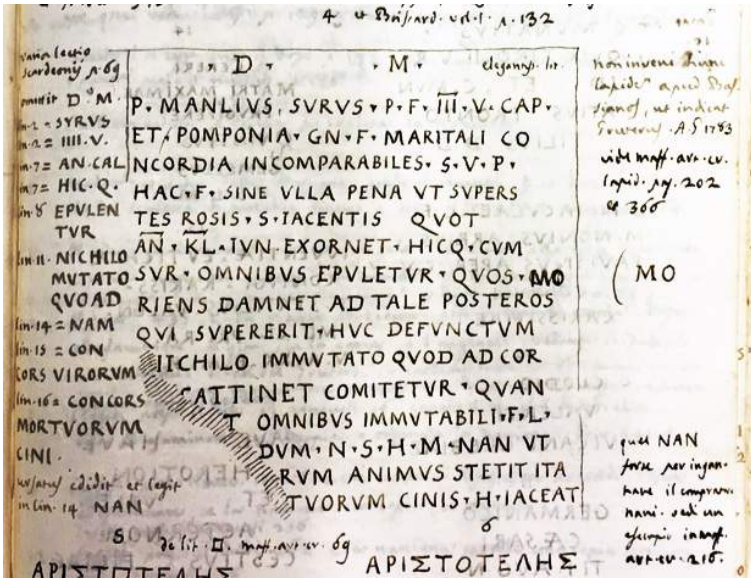 4 et Boissard. vol. I. p. 132
varia lectio
Scardeonij p. 69
omittit D. M.
lin. 2 = SYRVS
lin. 2 = IIII. V.
lin. 7 = AN. CAL
lin. 7 = HIC. Q.
lin. 8 EPVLEN
TVR
lin. 11. NICHILO
MVTATO
QVOAD
lin. 14 = NAM
lin. 15 = CON
CORS VIRORVM
lin. 16 = CONCORS
MORTVORVM
CINI.
ursatus edidit et legit
in lin. 14 NAN
D • M • elegantiss. lit.
P. MANLIVS, SVRVS • P. F. III. V. CAP.
ET. POMPONIA. GN. F. MARITALI CO
NCORDIA INCOMPARABILES. S. V. P.
HAC. F. SINE VLLA PENA VT SVPERS
TES ROSIS. S. IACENTIS QVOT
AN. KL. IVN. EXORNET. HICQ. CVM
SVR. OMNIBVS EPVLETVR. QVOS. MO
RIENS DAMNET AD TALE POSTEROS
QVI SVPERERIT. HVC DEFVNCTVM
IICHILO IMMVTATO QVOD AD COR
CATTINET COMITETVR. QVAN
T OMNIBVS IMMVTABILI. F. L.
DVM. N. S. H. M. NAN VT
RVM ANIMVS STETIT ITA
TVORVM CINIS. H. IACEAT
non inveni hunc
lapidem apud Bas
sianos, ut indicat
Gruterus. A. S 1783
vide maff. art. cr.
lapid. pag. 202
et 366
( MO
quel NAN
forse per ingan-
nare il compran-
nani. vedi un
esempio in maff.
art. cr. 216.
5 de lit. II. maff. art. cr. 69
6
ΑΡΙΣΤΟΤΕΛΗΣ ΑΡΙΣΤΟΤΕΛΗΣ